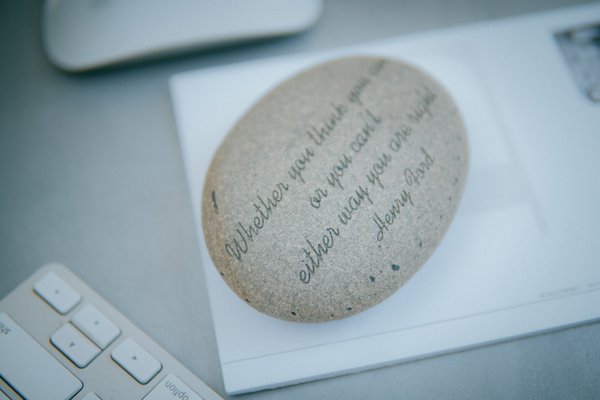 Whether you think you can
or you can't
either way you are right
Henry Ford
shift
option